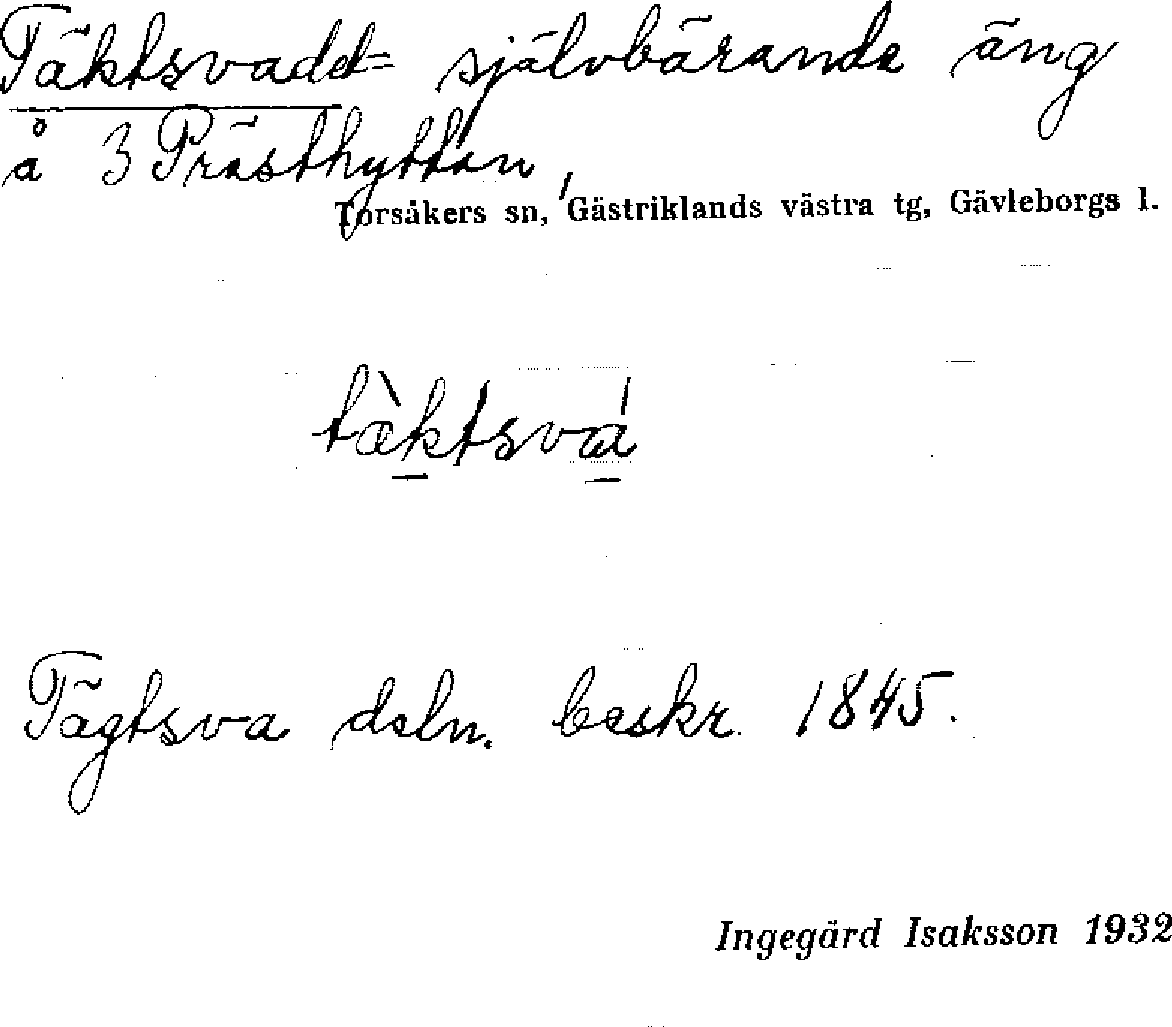 Täktsvadet= självbärande äng
å 3 Prästhyttan,
Torsåkers sn, Gästriklands västra tg, Gävleborgs l.
tæ̀ktsvá
Tägtsva dsln. beskr. 1845.
Ingegärd Isaksson 1932